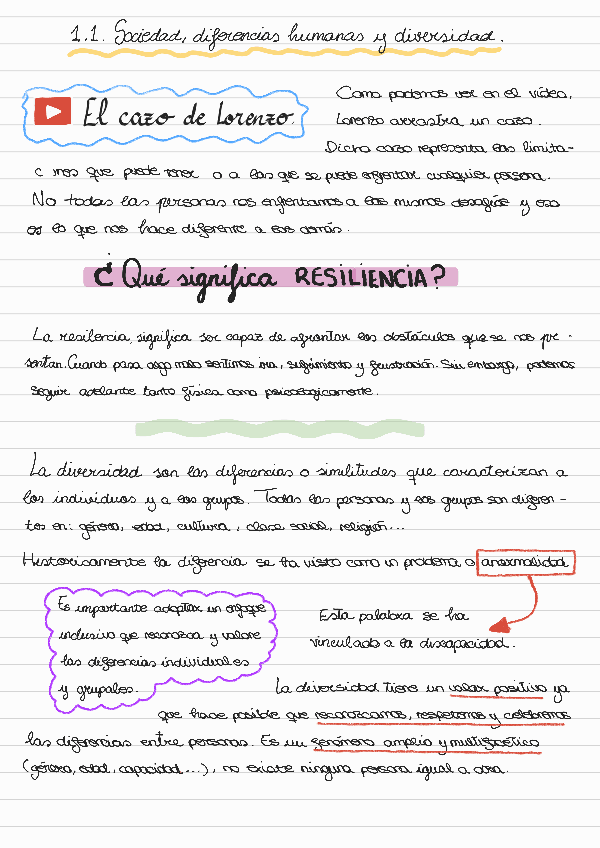 1.1. Sociedad, diferencias humanas y diversidad.
El cazo de Lorenzo.
Como podemos ver en el vídeo,
Lorenzo arrastra un cazo.
Dicho cazo representa las limita-
c nes que puede tener o a las que se puede enfrentar cualquier persona.
No todas las personas nos enfrentamos a los mismos desafíos y eso
es lo que nos hace diferente a los demás.
¿Qué significa RESILIENCIA?
La resilencia significa ser capaz de afrontar los obstáculos que se nos pre -
sentan. Cuando pasa algo malo sentimos ira, sufrimiento y frustración. Sin embargo, podemos
seguir adelante tanto física como psicológicamente.
La diversidad son las diferencias o similitudes que caracterizan a
los individuos y a los grupos. Todas las personas y los grupos son diferen-
tes en: género, edad, cultura, clase social, religión...
Historicamente la diferencia se ha visto como un problema o anormalidad
Esta palabra se ha
vinculado a la discapacidad.
Es importante adoptar un enfoque
inclusivo que reconozca y valore
las diferencias individuales
y grupales.
La diversidad tiene un valor positivo ya
que hace posible que reconozcamos, respetemos y celebremos
las diferencias entre personas. Es un fenómeno amplio y multifacético
(género, edad, capacidad...), no existe ninguna persona igual a otra.